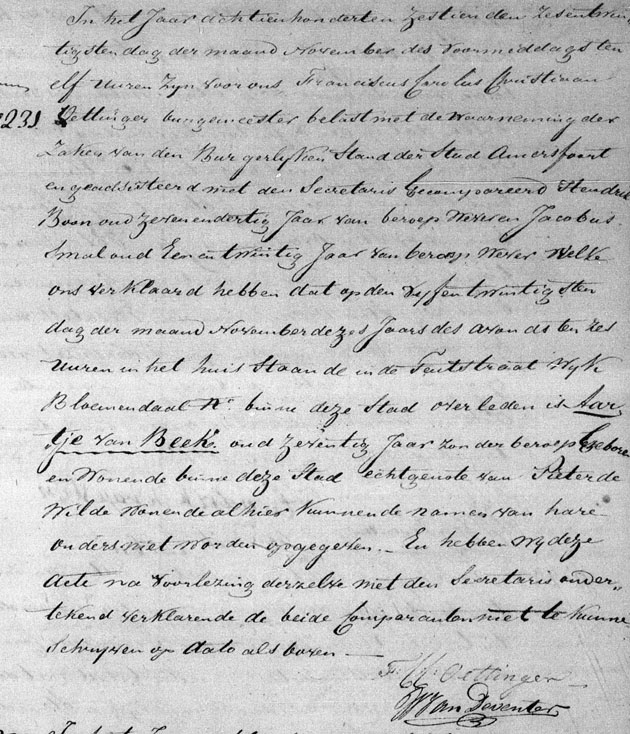 In het Jaar achtienhonderten zestien den zesentwin,
tigsten dag der maand November des voormiddags ten
elf Uuren zyn voor ons Franciscus Carolus Cristiaan
231 Oettinger burgemeester belast met de waarneming der
Zaken van den Burgerlyken Stand der Stad Amersfoort
en geadsisteerd met den Secretaris Gecompareerd Hendrik
Boon oud zevenendertig Jaar van beroep Wever en Jacobus
Smal oud Eenentwintig Jaar van beroep Wever Welke
ons verklaard hebben dat op den Vyfentwintigsten
dag der maand November dezes Jaars des avonds ten zes
Uuren in het huis Staande in de Teutstraat Wyk
Bloemendaal No. binne deze Stad overleden is Aar
tje van Beek oud zeventig Jaar zonder beroep Geboren
en Wonende binne deze Stad echtgenote van Pieter de
Wilde Wonende alhier Kunnende namen van hare
ouders niet Worden opgegeven. En hebben Wy deze
Acte na voorlezing derzelve met den Secretaris onder,,
tekend verklarende de beide Comparanten niet te Kunne
Schryven op dato als boven
F. C. C. Oettinger
Van Deventer